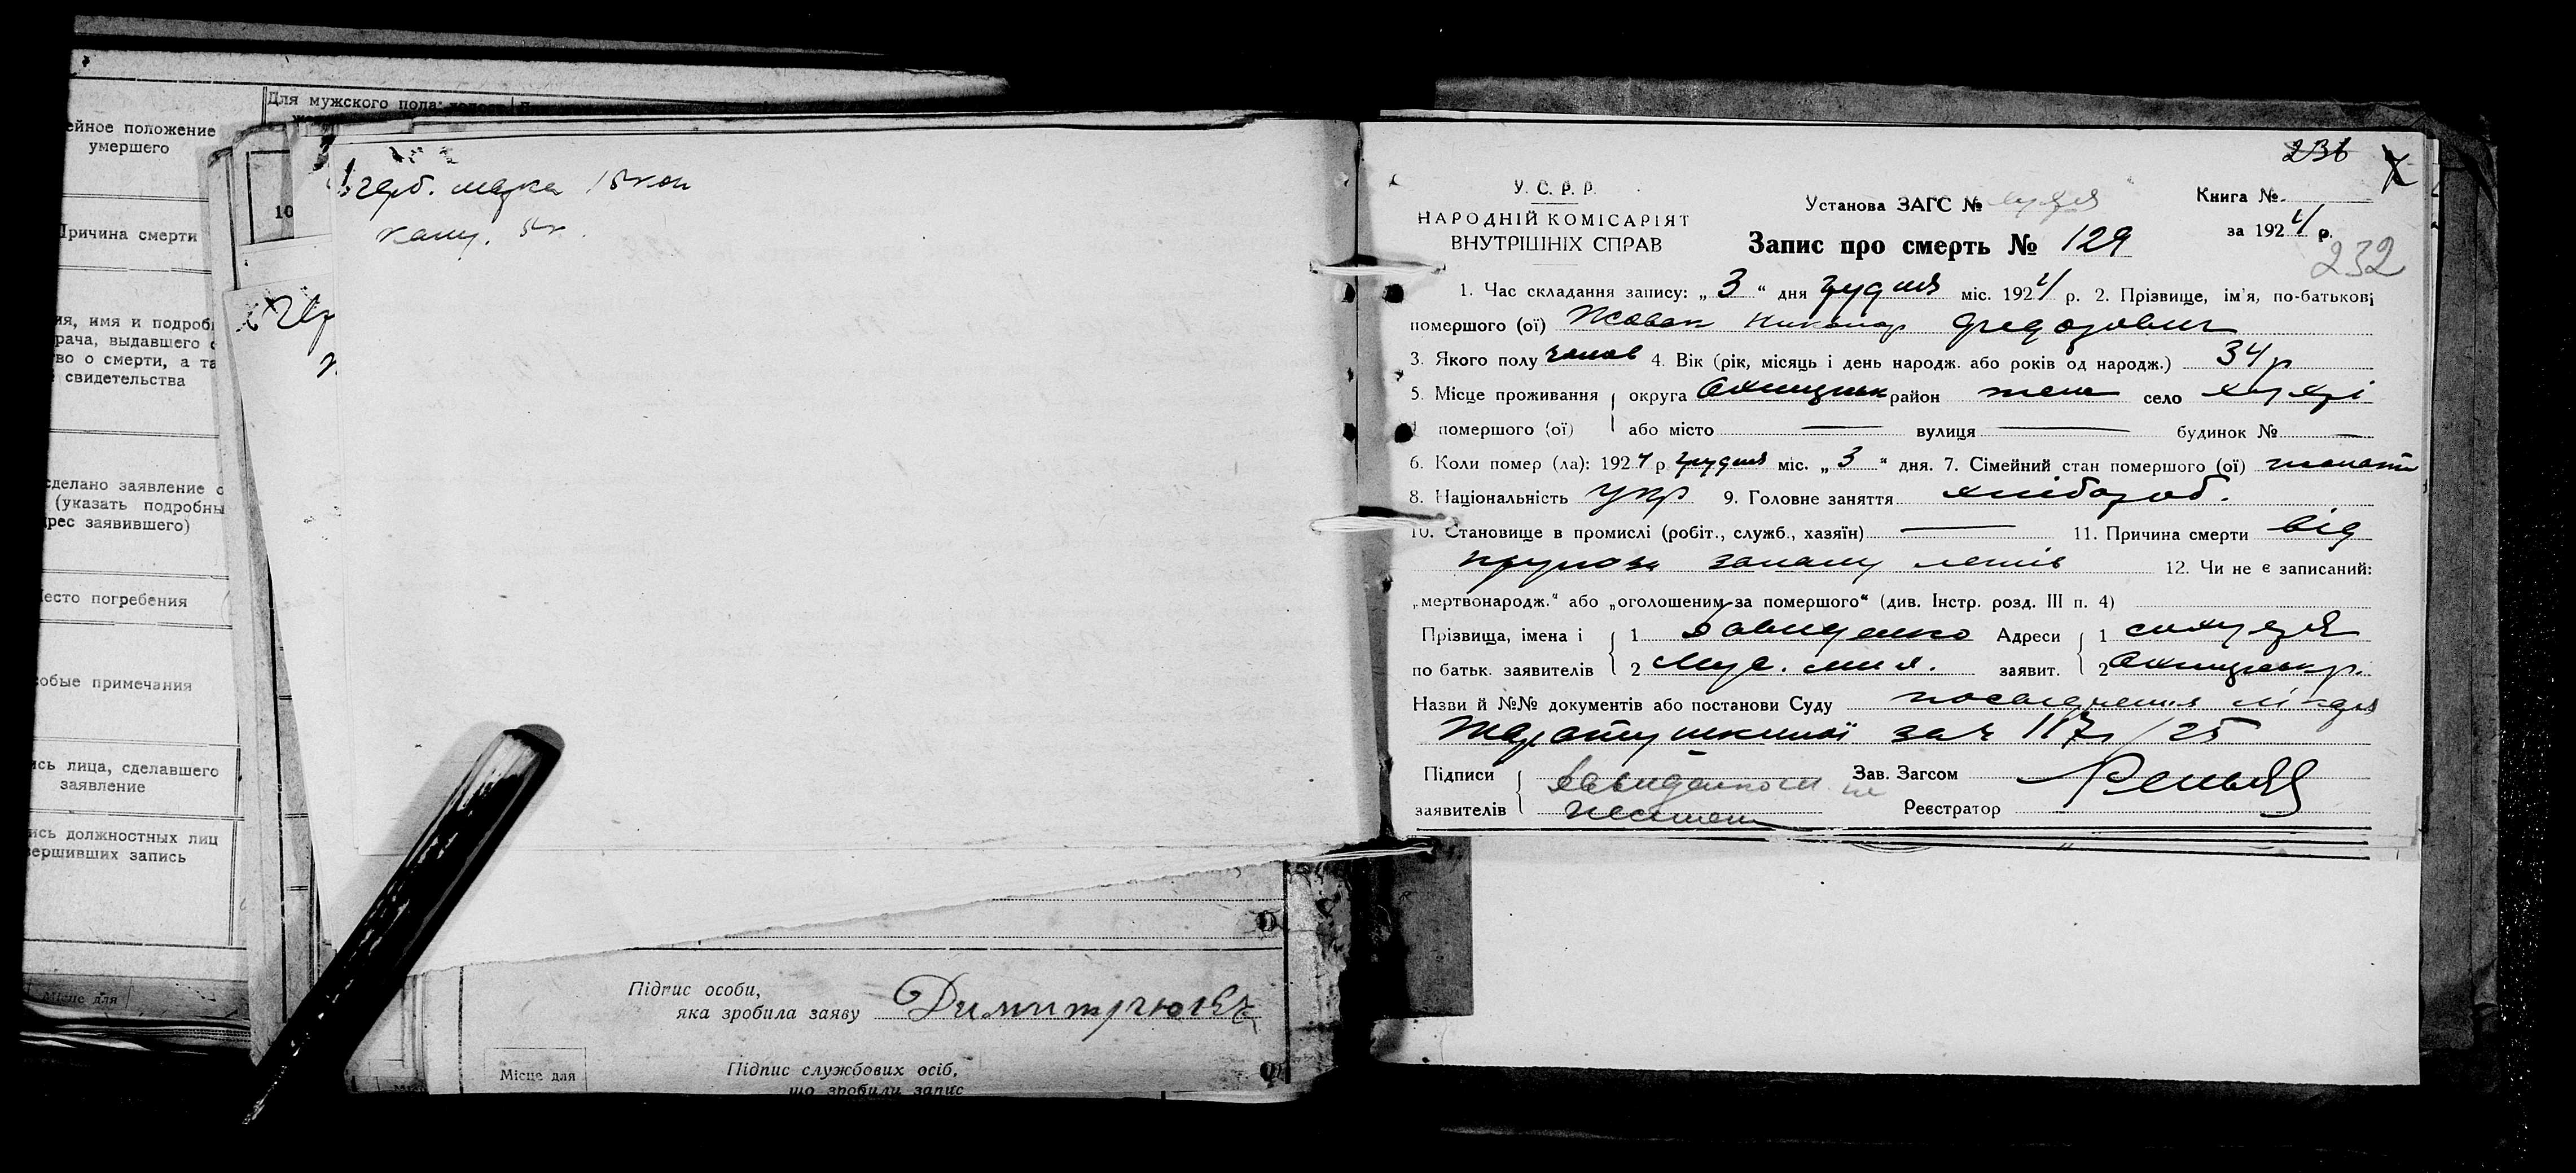 Для мужского пола:
ейное положение
умершего
10
Причина смерти
ия, имя и подробн
рача, выдавшего с
во о смерти, а та
свидетельства
сделано заявление о
(указать подробны
рес заявившего)
есто погребения
собые примечания
ись лица, сделавшего
заявление
ись должностных лиц
вершивших запись
Місце для
герб. марка 15 коп
канц. 5к.
Підпис особи,
яка зробила заяву
Місце для
Підпис службових осіб,
що зробили запис
236
У. С. Р. Р.
НАРОДНІЙ КОМІСАРІЯТ
ВНУТРІШНІХ СПРАВ
Установа ЗАГС №
Запис про смерть № 129
Книга №
за 1924 р.
232
1. Час складання запису: „3“ дня грудня міс. 1924 р. 2. Прізвище, ім'я, по-батькові
помершого (ої) Жован Никанор Федорович
3. Якого полу чолов 4. Вік (рік, місяць і день народж. або років од народж.) 34 р
5. Місце проживання округа район село
помершого (ої) або місто — вулиця — будинок № —
6. Коли помер (ла): 1924 р. грудня міс. „3“ дня. 7. Сімейний стан помершого (ої) жонати
8. Національність укр 9. Головне заняття хлібороб.
10. Становище в промислі (робіт., служб., хазяїн) — 11. Причина смерти від
крупозн запалу легнів 12. Чи не є записаний:
„мертвонародж.“ або „оголошеним за помершого“ (див. Інстр. розд. III п. 4)
Прізвища, імена і 1 Давиденко Адреси 1
по батьк. заявителів 2 заявит. 2
Назви й №№ документів або постанови Суду посвідчення лікаря
за ч 117/25
Підписи Зав. Загсом
заявителів Реєстратор